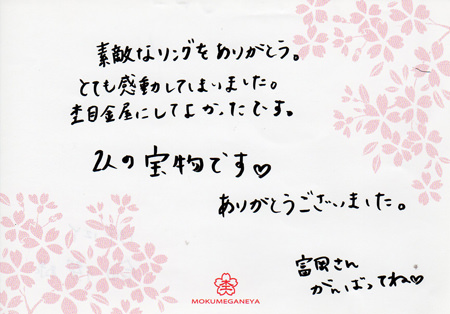 素敵なリングをありがとう。
とても感動してしまいました。
杢目金屋にしてよかったです。
2人の宝物です♡
ありがとうございました。
富岡さん
がんばってね♡
杢
MOKUMEGANEYA